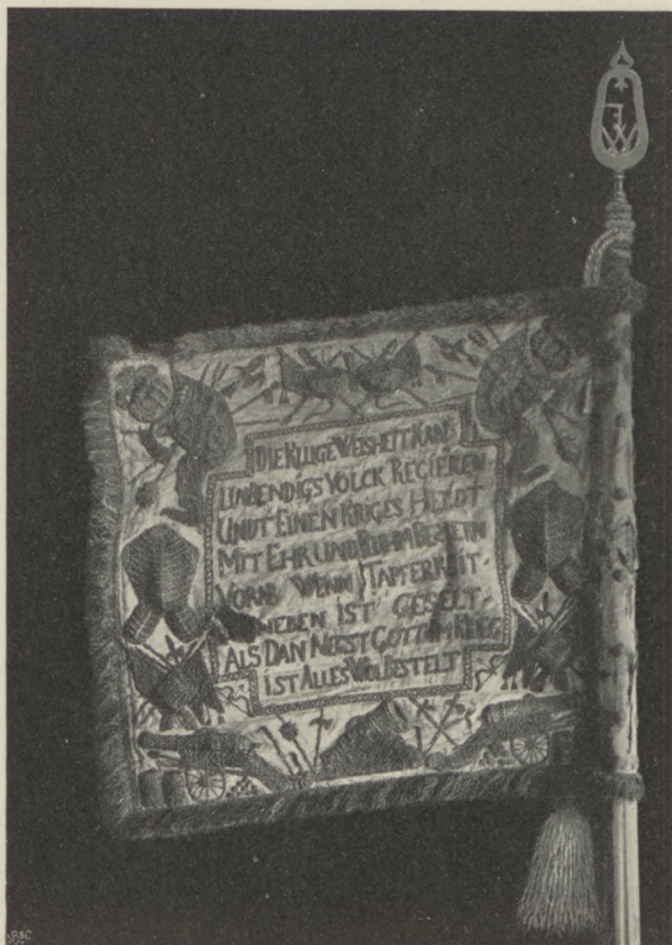 FW
DIE KLUGE WEISHEIT KAN
UNBENDIGS VOLCK REGIEREN
UNDT EINEN KRIGES HELDT
MIT EHR UND RUHM
VORAB WENN TAPFERKEIT.
NEBEN IST GESELT.
ALS DAN NEGST GOTT IM KRIEG
IST ALLES WOL BESTELT